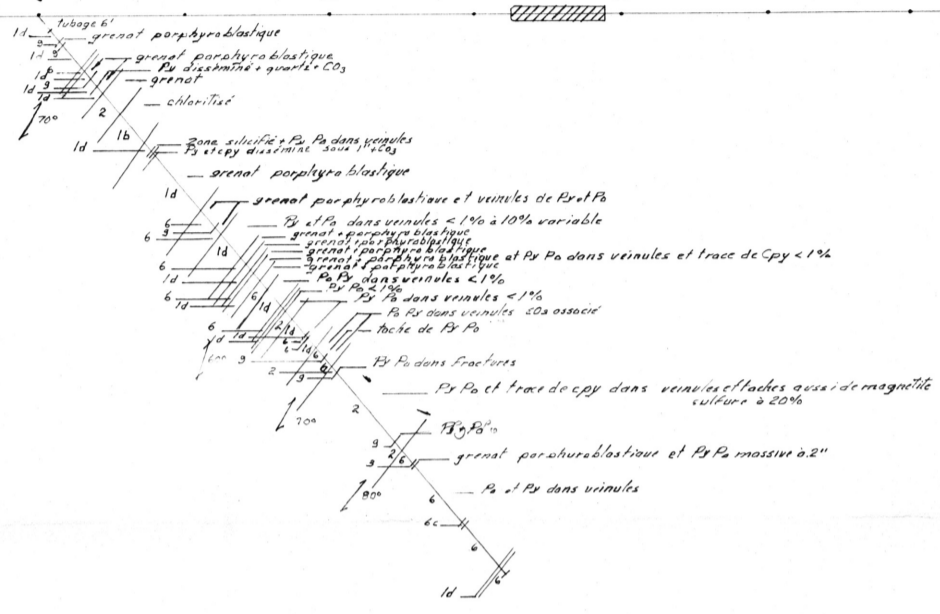 tubage 6'
1d
grenat porphyroblastique
9
1d 9
grenat porphyroblastique
Py disséminé + quartz + CO3
1d
grenat
1d
9
1d
2
chloritisé
70°
1b
Zone silicifié + Py Po dans veinules
1d
Py et cpy disséminé sous 1" + CO3
grenat porphyroblastique
1d
grenat porphyroblastique et veinules de Py et Po
6
9
6
Py et Po dans veinules < 1% à 10% variable
1d
grenat + porphyroblastique
grenat + porphyroblastique
grenat + porphyroblastique
grenat + porphyroblastique et Py Po dans veinules et trace de Cpy < 1%
6
grenat + porphyroblastique
1d
Po Py dans veinules < 1%
Py Po < 1%
6
6
1d
Py Po dans veinules < 1%
1d
Po Py dans veinules associé
6
2
1d
tache de Py Po
1d
d
6
6
1d
9
6
Py Po dans fractures
2
9
6
Py Po et trace de cpy dans veinules et taches aussi de magnétite
sulfure à 20%
2
70°
9
2
grenat porphuroblastique et Py Po massive à 2"
9
6
80°
Po et Py dans veinules
6
6c
6
6
1d